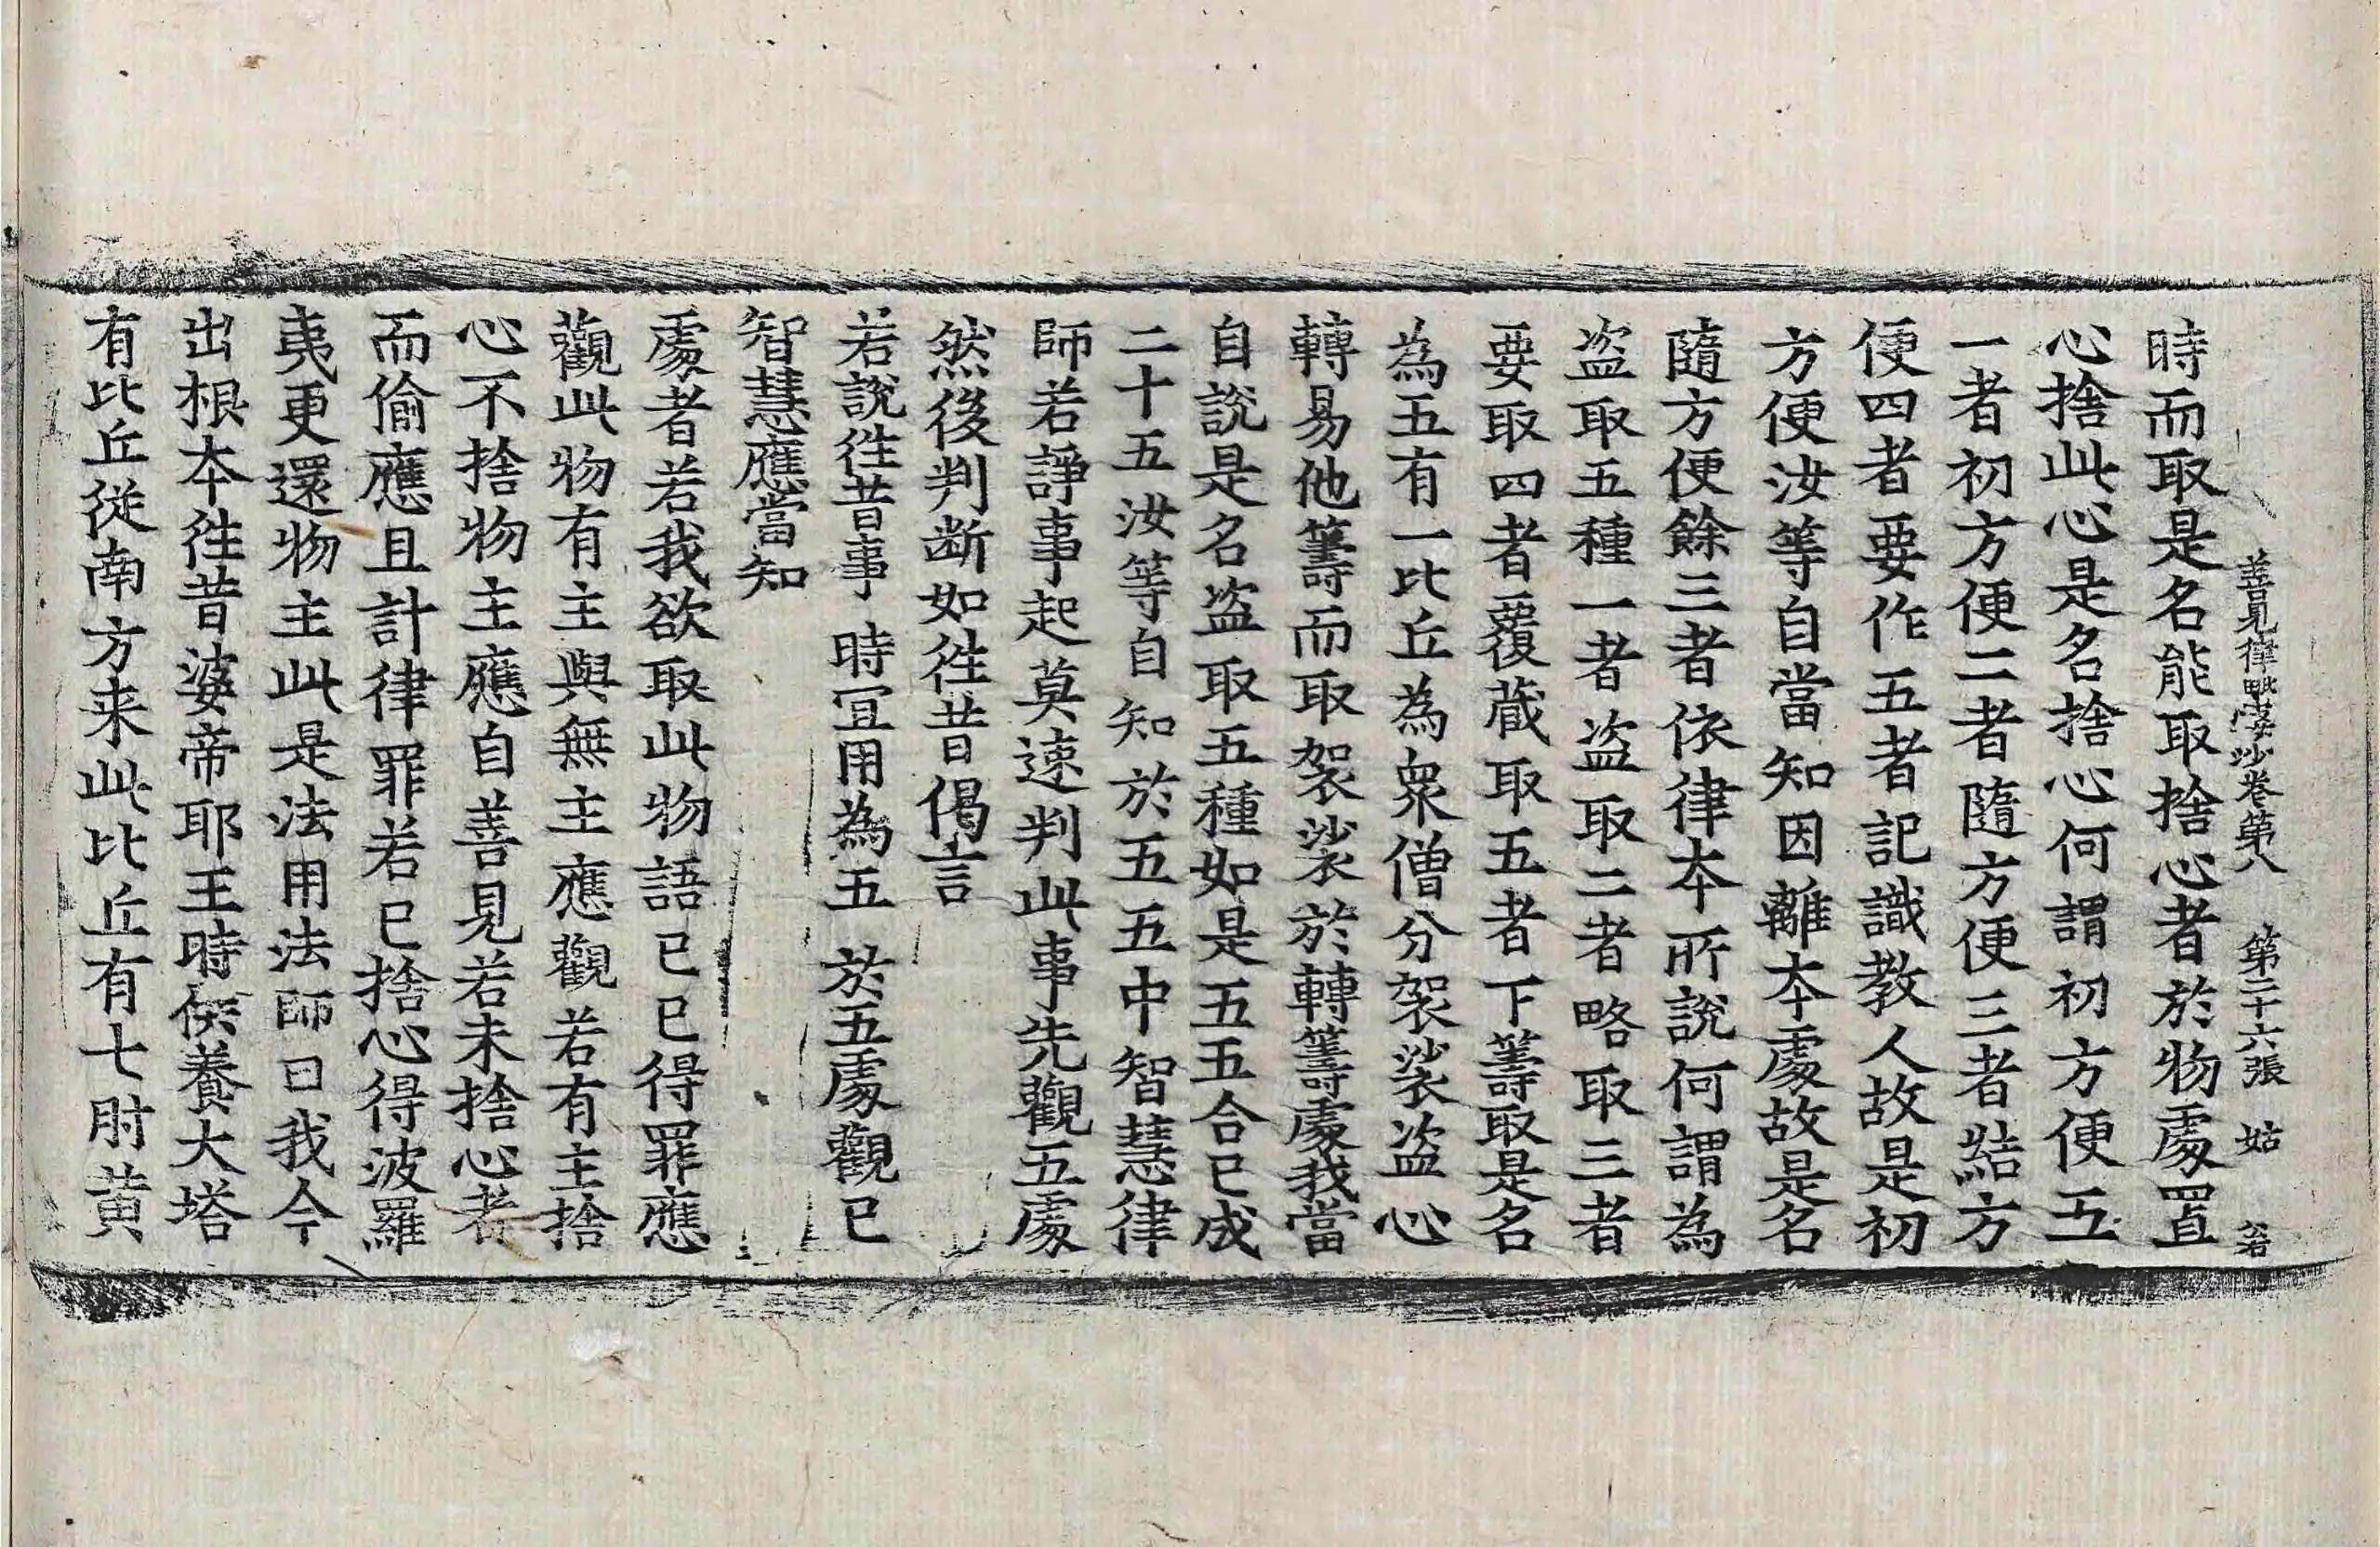 善見律毗婆沙卷第八 第二十六張 姑
時而取是名能取捨心者於物處置
心捨此心是名捨心何謂初方便五
一者初方便二者隨方便三者結方
便四者要作五者記識教人故是初
方便汝等自當知因離本處故是名
隨方便餘三者依律本所說何謂為
盜取五種一者盜取二者略取三者
要取四者覆藏取五者下籌取是名
為五有一比丘為衆僧分袈裟盜心
轉易他籌而取袈裟於轉籌處我當
自說是名盜取五種如是五五合已成
二十五汝等自知於五五中智慧律
師若諍事起莫速判此事先觀五處
然後判断如徃昔偈言
若說徃昔事 時冝用為五 於五處觀已
智慧應當知
處者若我欲取此物語已已得罪應
觀此物有主與無主應觀若有主捨
心不捨物主應自善見若未捨心者
而偷應且計律罪若已捨心得波羅
夷更還物主此是法用法師曰我今
出根本徃昔婆帝耶王時供養大塔
有比丘從南方来此比丘有七肘黄